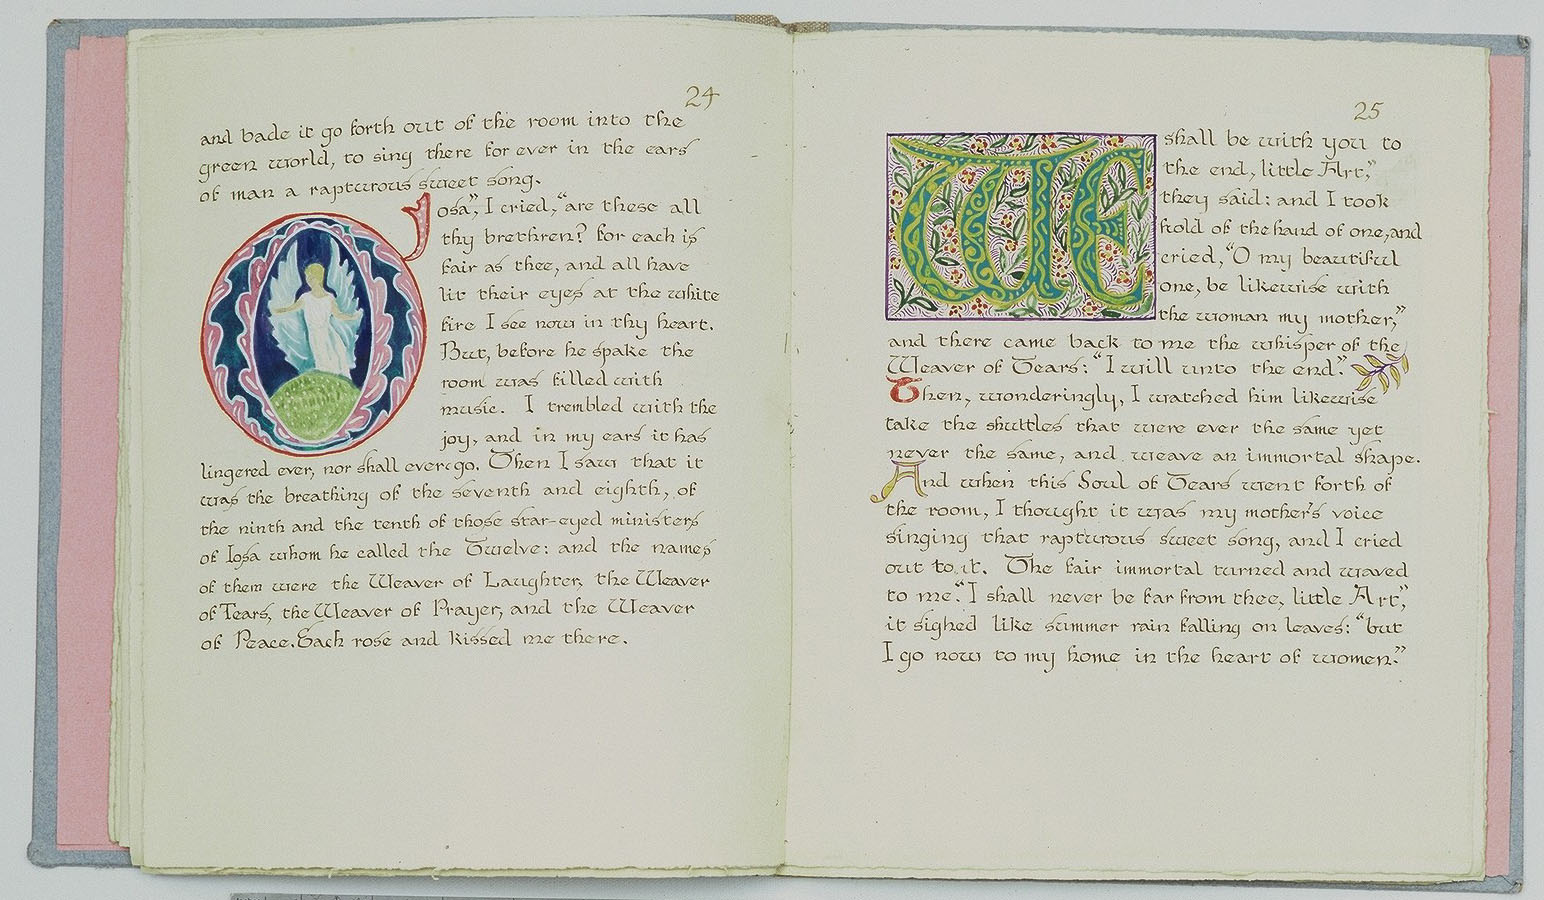 24
and bade it go forth out of the room into the
green world, to sing there for ever in the ears
of man a rapturous sweet song.
O Iosa,” I cried, “are these all
thy brethren? for each is
fair as thee, and all have
lit their eyes at the white
fire I see now in thy heart.
But, before he spake the
room was filled with
music. I trembled with the
joy, and in my ears it has
lingered ever, nor shall ever go. Then I saw that it
was the breathing of the seventh and eighth, of
the ninth and the tenth of those star-eyed ministers
of Iosa whom he called the Twelve: and the names
of them were the Weaver of Laughter, the Weaver
of Tears, the Weaver of Prayer, and the Weaver
of Peace. Each rose and kissed me there.
25
WE shall be with you to
the end, little Art,”
they said: and I took
hold of the hand of one, and
cried, “O my beautiful
one, be likewise with
the woman my mother,”
and there came back to me the whisper of the
Weaver of Tears: “I will unto the end.”
Then, wonderingly, I watched him likewise
take the shuttles that were ever the same yet
never the same, and weave an immortal shape.
And when this Soul of Tears went forth of
the room, I thought it was my mother's voice
singing that rapturous sweet song, and I cried
out to it. The fair immortal turned and waved
to me. “I shall never be far from thee, little Art,”
it sighed like summer rain falling on leaves: “but
I go now to my home in the heart of women.”